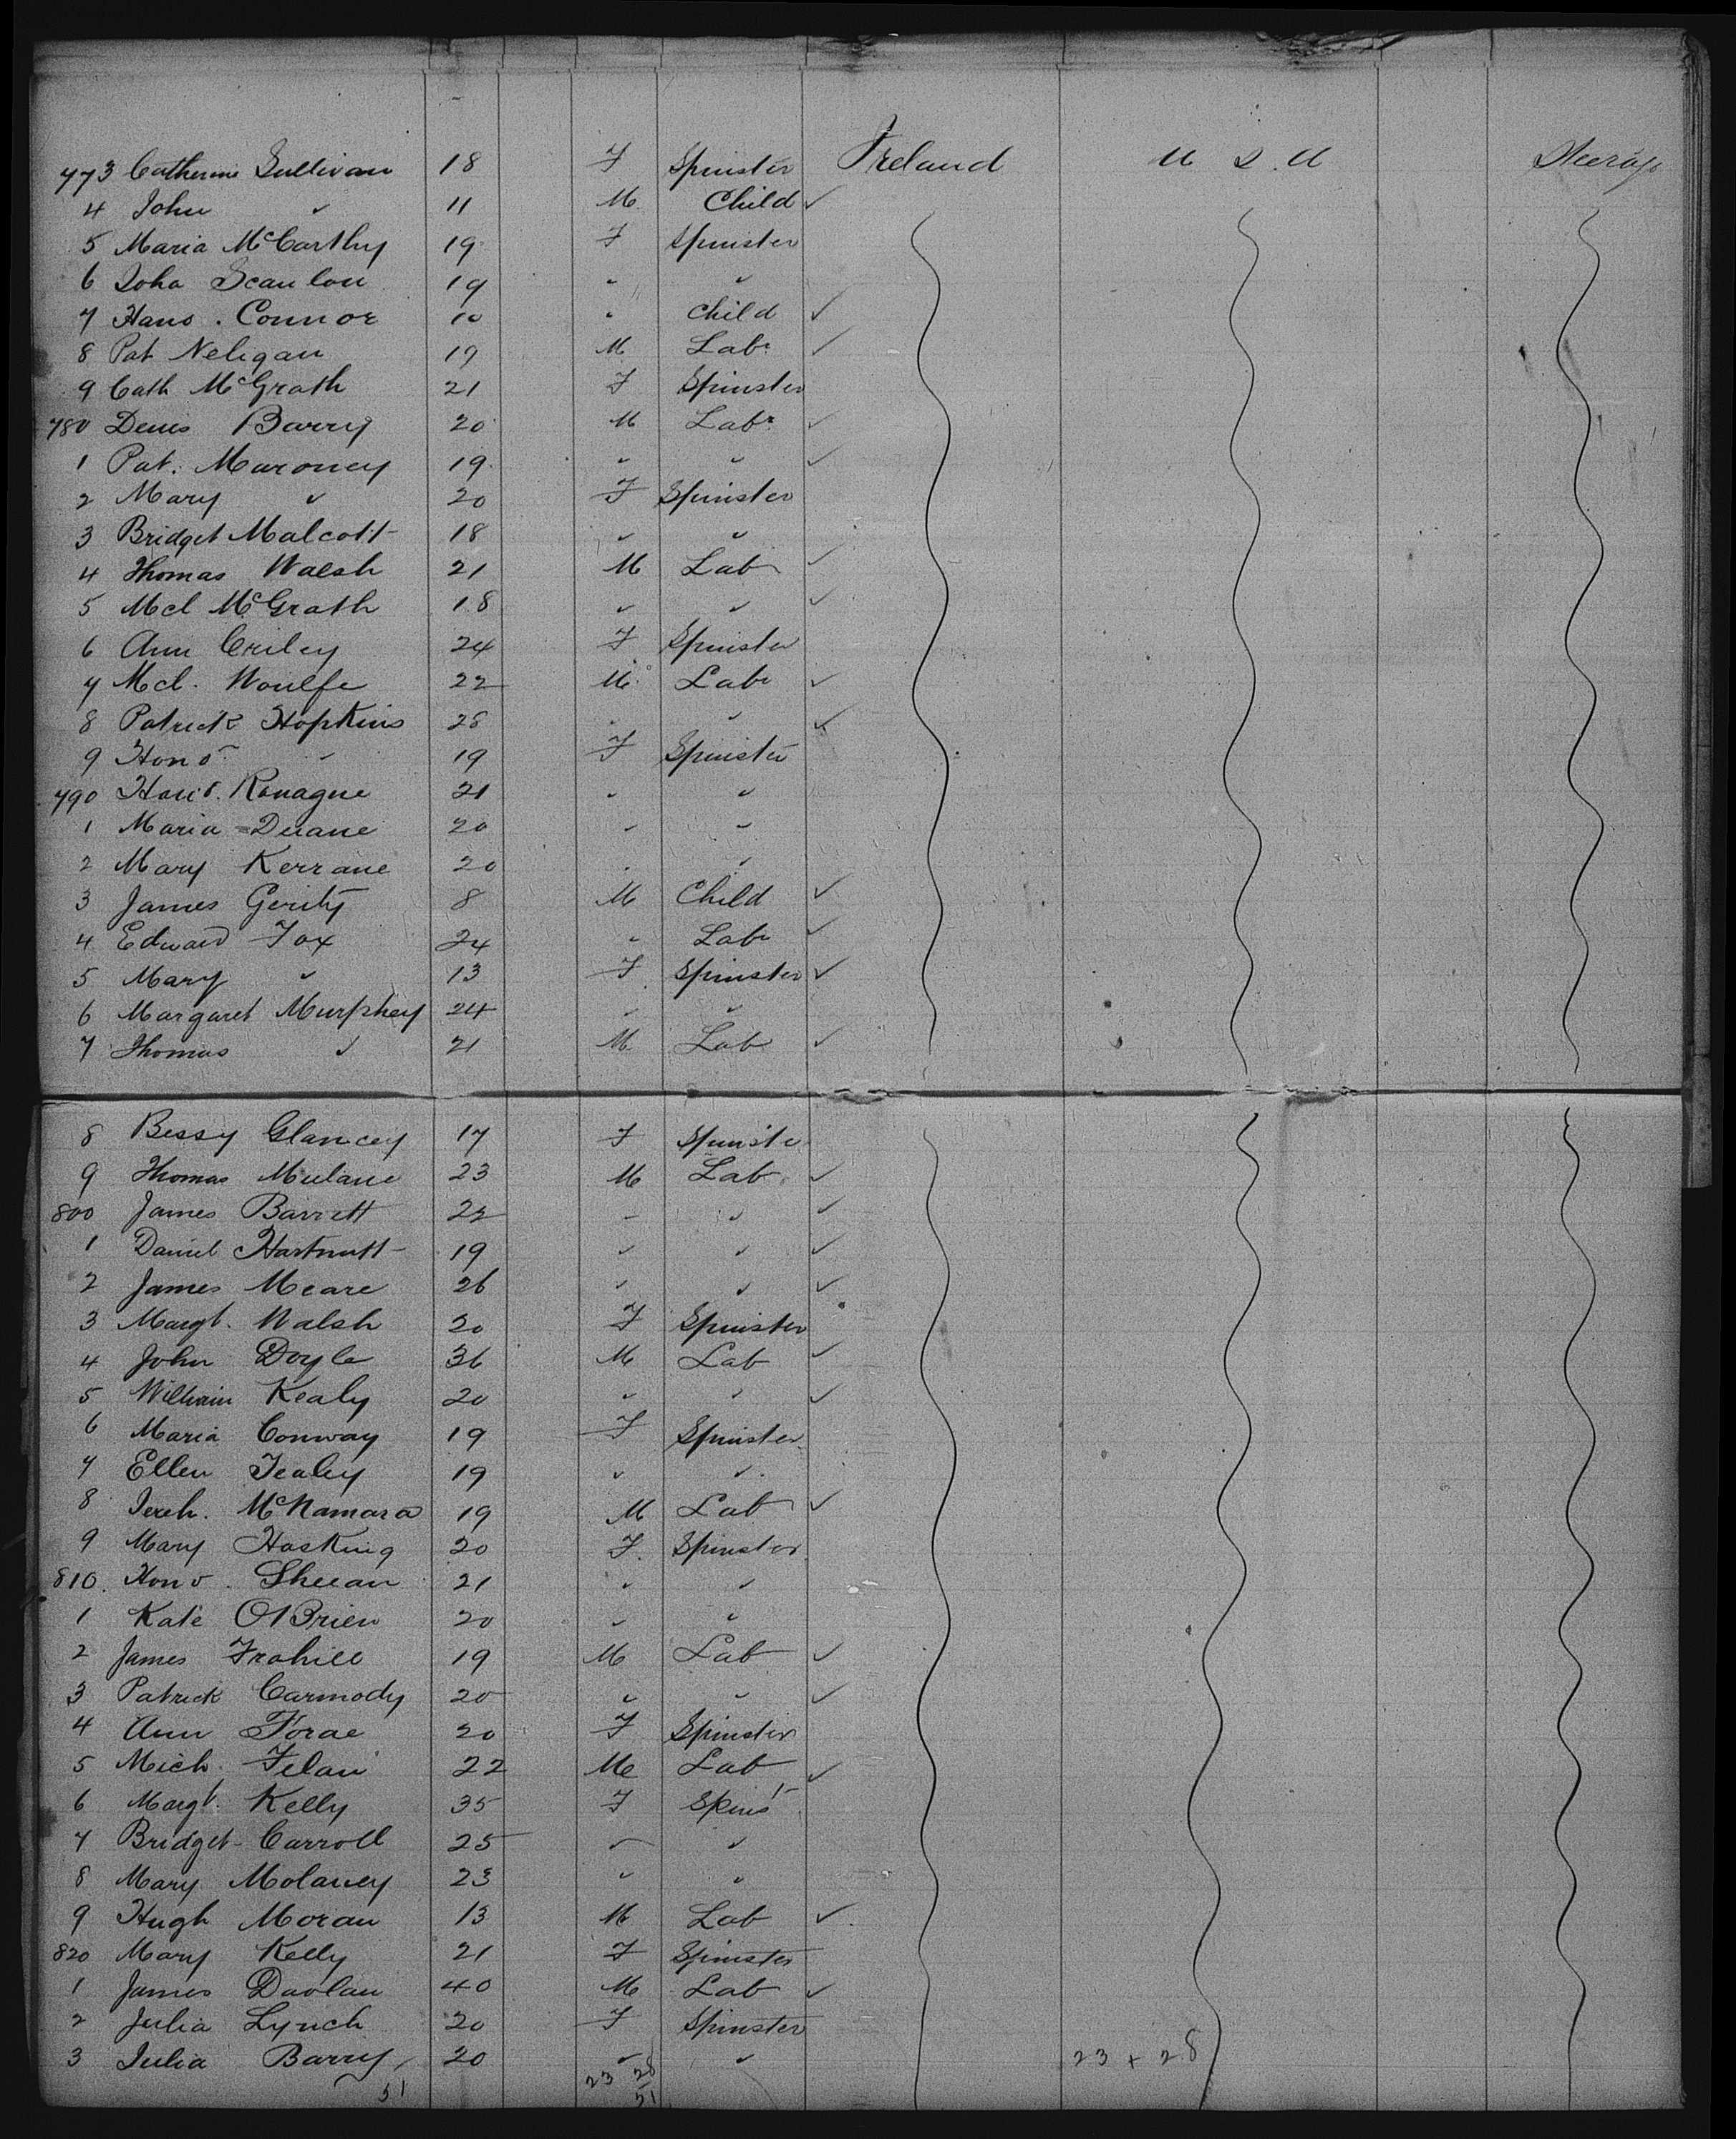 773 Catherine Sullivan 18 F Spinster Ireland U S. A Steerage
4 John " 11 M. Child ✓
5 Maria McCarthy 19 F Spinster
6 Joha Scanlon 19 " "
7 Hano. Connor 10 " Child ✓
8 Pat Neligan 19 M Labr ✓
9 Cath McGrath 21 F Spinster
780 Denis Barry 20 M Labr ✓
1 Pat. Maroney 19 " " ✓
2 Mary " 20 F Spinster
3 Bridget Malcott 18 " "
4 Thomas Walsh 21 M Lab ✓
5 Mcl McGrath 18 " " ✓
6 Ann Criley 24 F Spinster
7 Mcl. Woulfe 22 M. Labr ✓
8 Patrick Hopkins 28 " " ✓
9 Hono " 19 F Spinster
790 Hono. Ronague 21 " "
1 Maria Duane 20 " "
2 Mary Kerrane 20 " "
3 James Gerity 8 M Child ✓
4 Edward Fox 24 " Labr ✓
5 Mary " 13 F Spinster ✓
6 Margaret Murphey 24 " "
7 Thomas " 21 M Lab ✓
8 Bessy Glancey 17 F Spinste
9 Thomas Mulane 23 M Lab ✓
800 James Barrett 22 " " ✓
1 Daniel Hartnutt 19 " " ✓
2 James Meare 26 " " ✓
3 Margt. Walsh 20 F Spinster
4 John Doyle 36 M Lab ✓
5 William Kealy 20 " " ✓
6 Maria Conway 19 F Spinster
7 Ellen Fealey 19 " "
8 Jereh. McNamara 19 M Lab ✓
9 Mary Hosking 20 F. Spinster
810. Hono. Sheean 21 " "
1 Kate O'Brien 20 " "
2 James Frahill 19 M Lab ✓
3 Patrick Carmody 20 " " ✓
4 Ann Forae 20 F Spinster
5 Mich. Felan 22 M Lab ✓
6 Margt. Kelly 35 F Spinst
7 Bridget Carroll 25 " "
8 Mary Molaney 23 " "
9 Hugh Moran 13 M Lab ✓
820 Mary Kelly 21 F Spinster
1 James Doolan 40 M Lab ✓
2 Julia Lynch 20 F Spinster
3 Julia Barry 20 " " 23 + 28
51 23 28
51